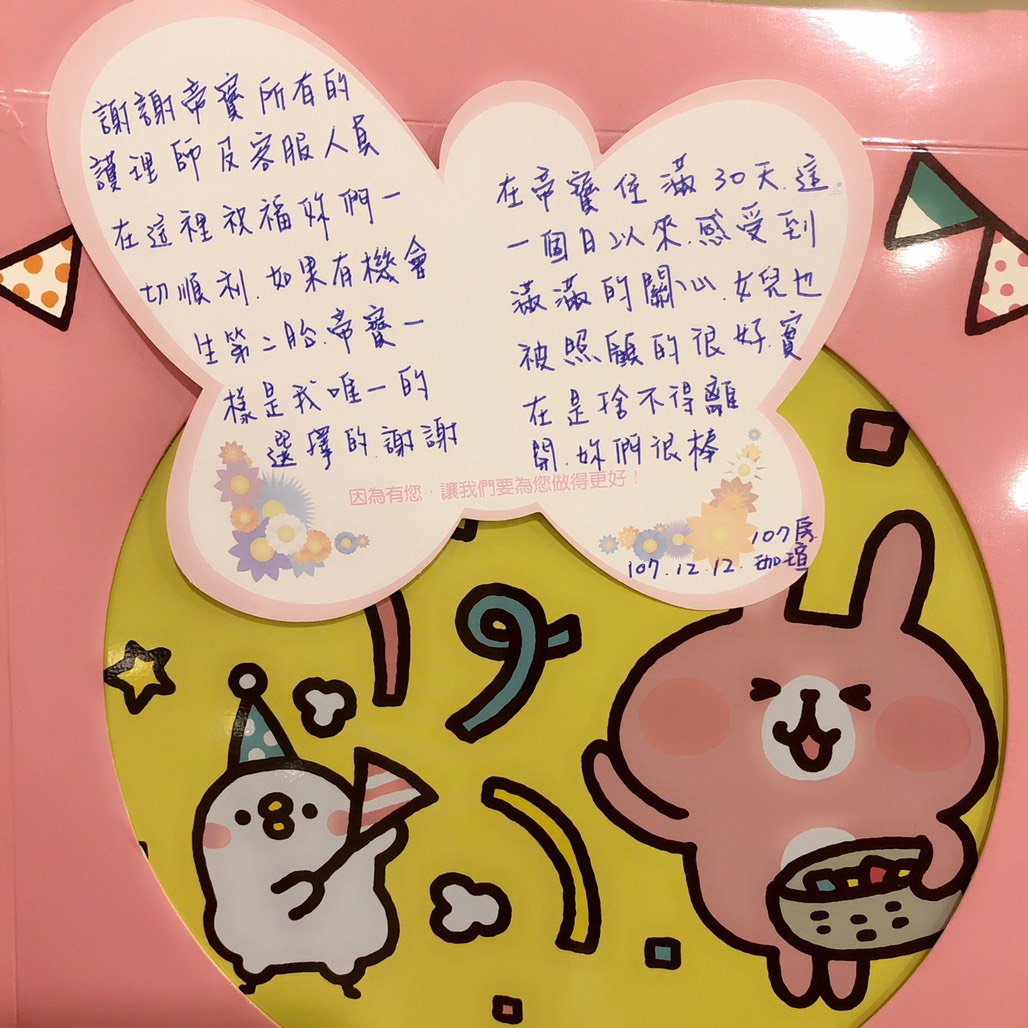 謝謝帝寶所有的
護理師及客服人員
在這裡祝福妳們一
切順利.如果有機會
生第二胎.帝寶一
樣是我唯一的
選擇的.謝謝
在帝寶住滿30天.這
一個日以來.感受到
滿滿的關心.女兒也
被照顧的很好.實
在是捨不得離
開.妳們很棒
因為有您，讓我們要為您做得更好！
107房
107.12.12.珈瑄